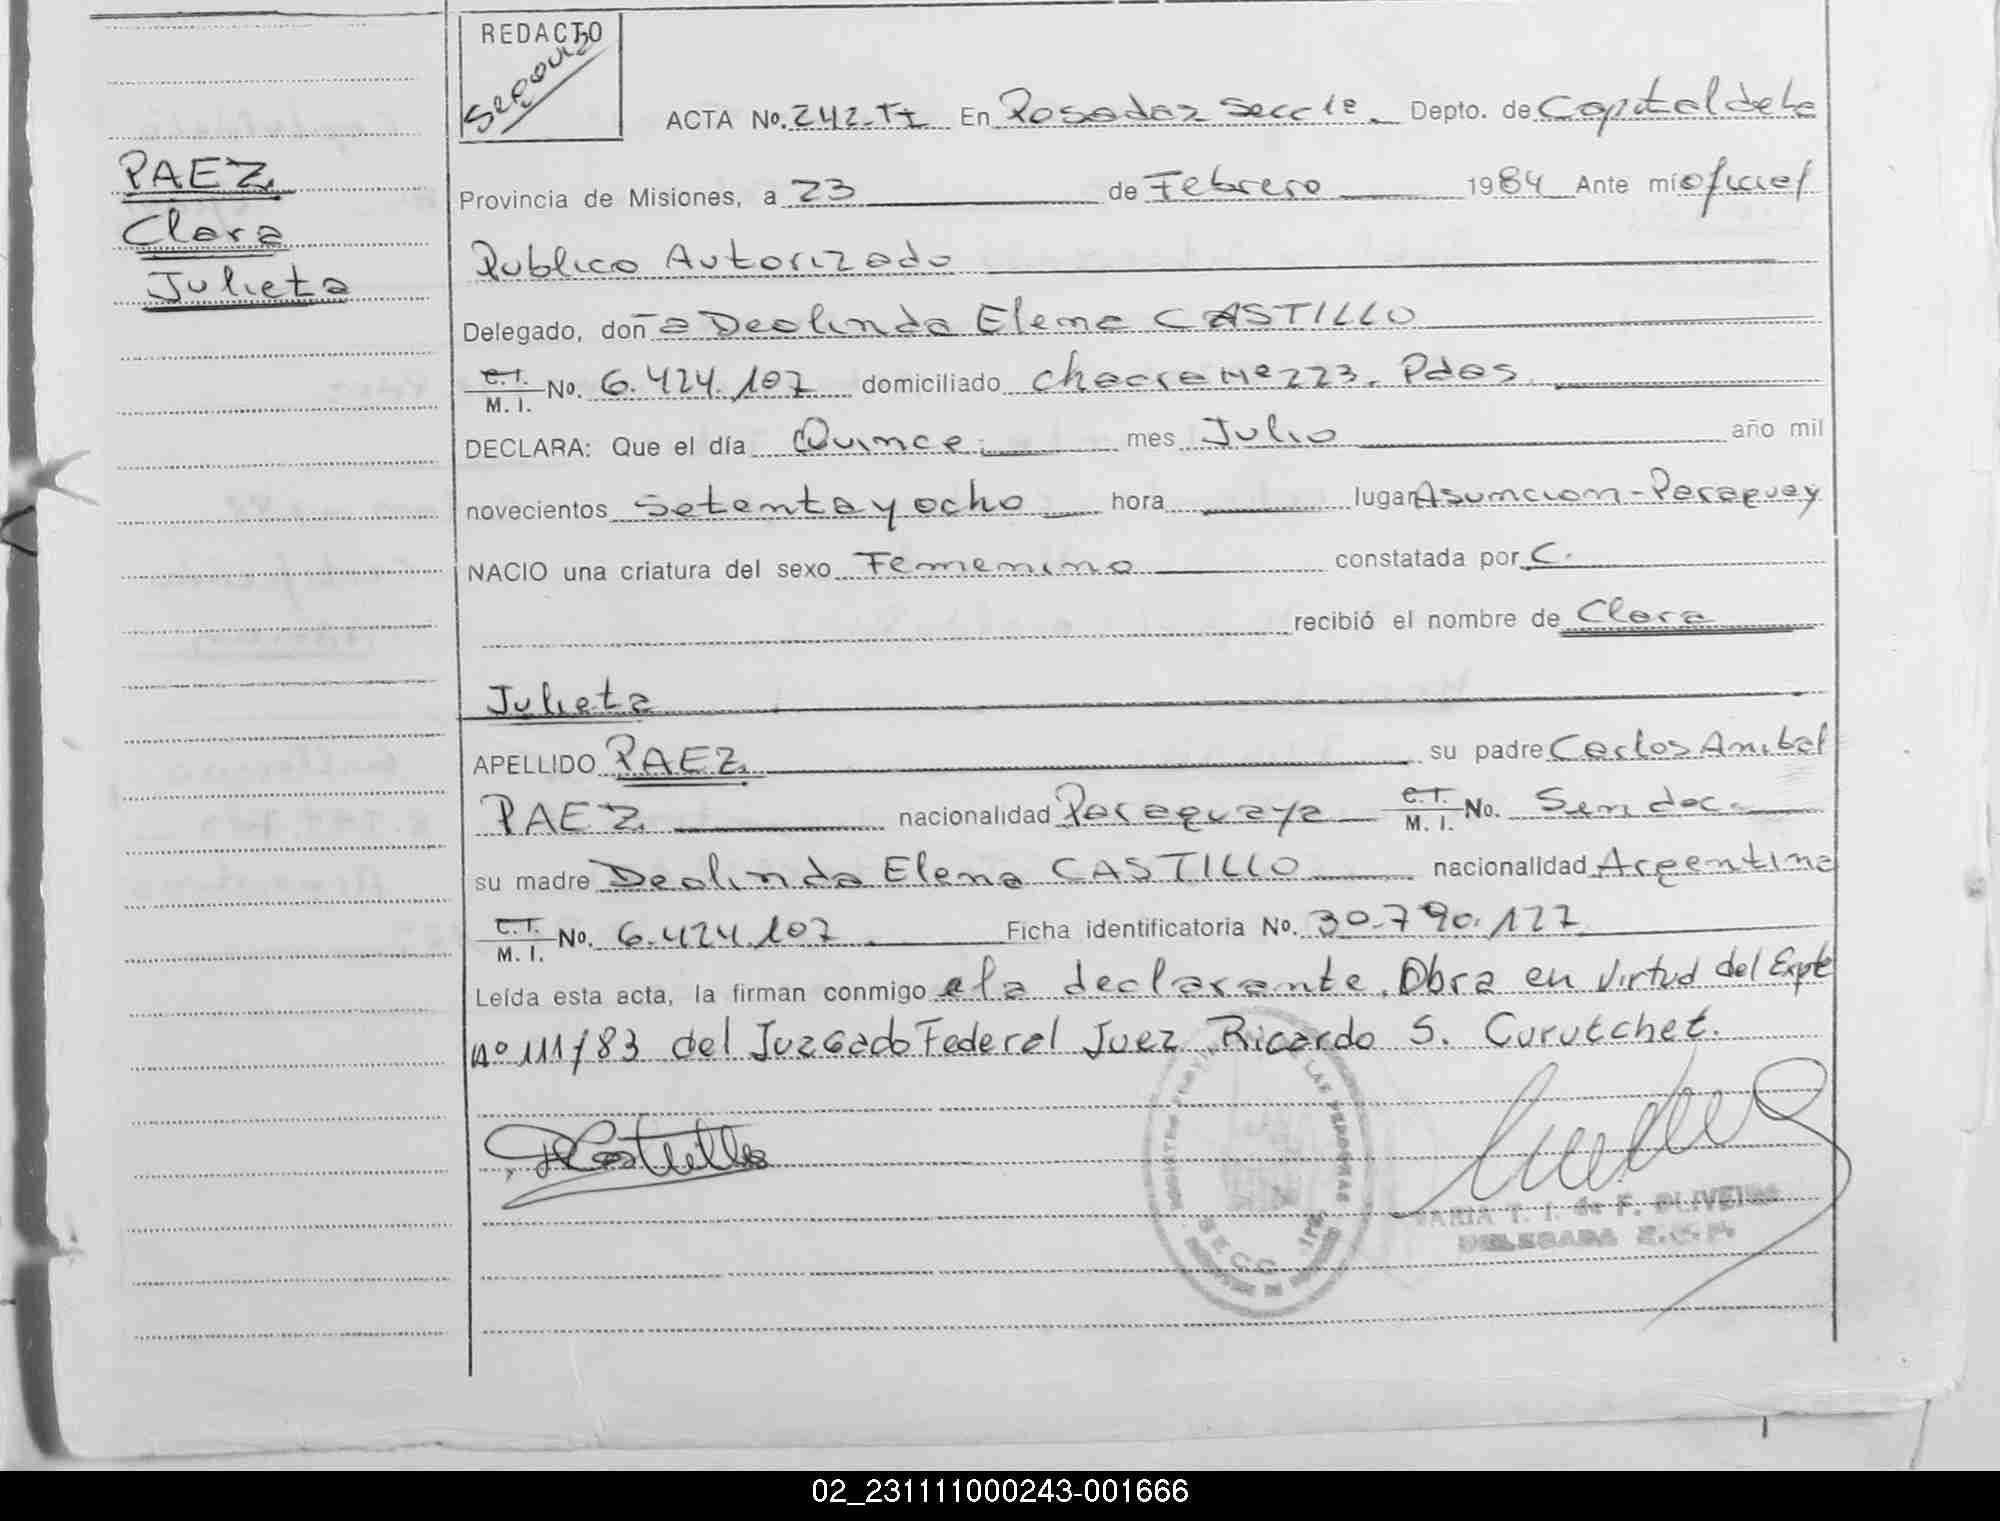 REDACTO
ACTA No. 242-TI En Posadas Secc 1ª Depto. de Capital de la
PAEZ
Clara
Julieta
Provincia de Misiones, a 23 de Febrero 1984 Ante mí oficial
Publico Autorizado
Delegado, don a Deolinda Elena CASTILLO
C.I. M.I. No. 6.424.107 domiciliado chacra Nº 223. Pdas.
DECLARA: Que el día Quince mes Julio año mil
novecientos Setenta y ocho hora lugar Asuncion - Paraguay
NACIO una criatura del sexo Femenino constatada por C.
recibió el nombre de Clara
Julieta
APELLIDO PAEZ su padre Carlos Anibal
PAEZ nacionalidad Paraguaya C.I. M.I. No. Sin doc.
su madre Deolinda Elena CASTILLO nacionalidad Argentina
C.I. M.I. No. 6.424.107 Ficha identificatoria No. 30.790.127
Leída esta acta, la firman conmigo la declarante. Obra en virtud del Expte
Nº 111/83 del Juzgado Federal Juez Ricardo S. Curutchet.
DCastillo
MARIA T. I. de F. OLIVEIRA
DELEGADA R.C.P.
LAS PERSONAS
SECC. 1ª
02_231111000243-001666